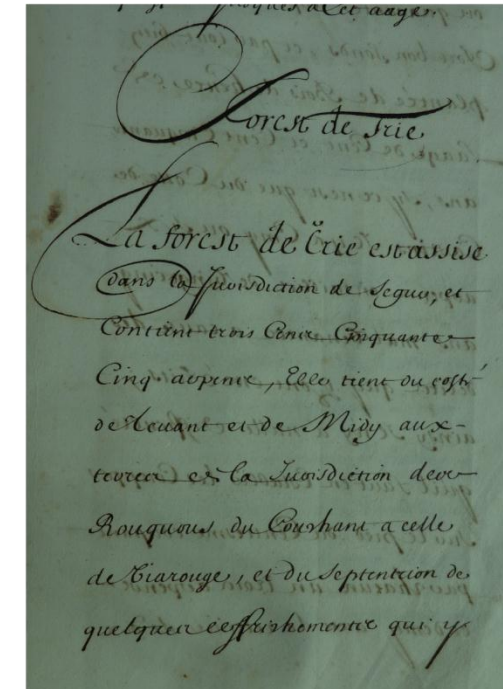 jusques a Cet aage.
Forest de Trie
La forest de Trie est assise
dans la Jurisdiction de Segur, et
Contient trois Cens Cinquante
Cinq arpens, Elle tient du costé
de Levant et de Midy aux
terres es la Jurisdiction des
Rouquous du Couchant a celle
de Viarouge, et du Septentrion de
quelques effrichements qui y